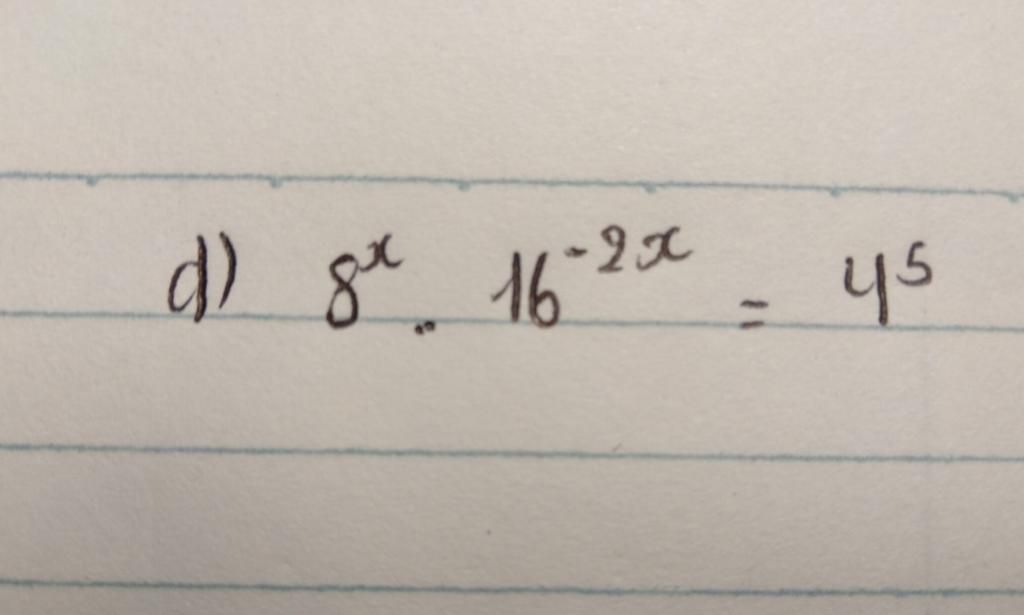 d) 8ˣ · 16⁻²ˣ = 4⁵